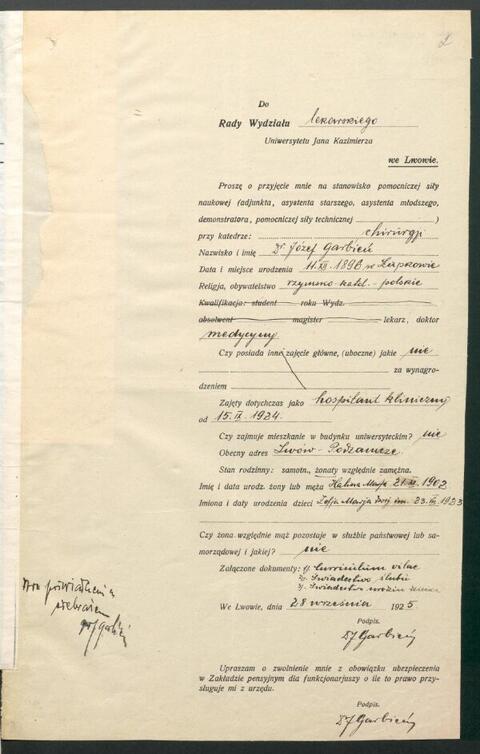 2
Do
Rady Wydziału lekarskiego
Uniwersytetu Jana Kazimierza
we Lwowie.
Proszę o przyjęcie mnie na stanowisko pomocniczej siły
naukowej (adjunkta, asystenta starszego, asystenta młodszego,
demonstratora, pomocniczej siły technicznej )
przy katedrze: chirurgji
Nazwisko i imię Dr Józef Garbień
Data i miejsce urodzenia 11.XII.1896 w Łupkowie
Religja, obywatelstwo rzymsko-katol. - polskie
Kwalifikacja: student roku Wydz.
absolwent magister lekarz, doktor
medycyny
Czy posiada inne zajęcie główne, (uboczne) jakie nie
za wynagro-
dzeniem
Zajęty dotychczas jako hospitant kliniczny
od 15.IX.1924.
Czy zajmuje mieszkanie w budynku uniwersyteckim? nie
Obecny adres Lwów-Podzamcze
Stan rodzinny: samotn., żonaty względnie zamężna.
Imię i data urodz. żony lub męża Halina 1902
Imiona i daty urodzenia dzieci Zofja Marja 23.III.1923
Czy żona względnie mąż pozostaje w służbie państwowej lub sa-
morządowej i jakiej? nie
Załączone dokumenty: 1) Curriculum vitae
2) Świadectwo ślubu
3) Świadectwo urodzin
We Lwowie, dnia 28 września 1925
Podpis.
Dr J Garbień
Upraszam o zwolnienie mnie z obowiązku ubezpieczenia
w Zakładzie pensyjnym dla funkcjonarjuszy o ile to prawo przy-
sługuje mi z urzędu.
Podpis.
Dr J Garbień
odebrałem
Dr J Garbień